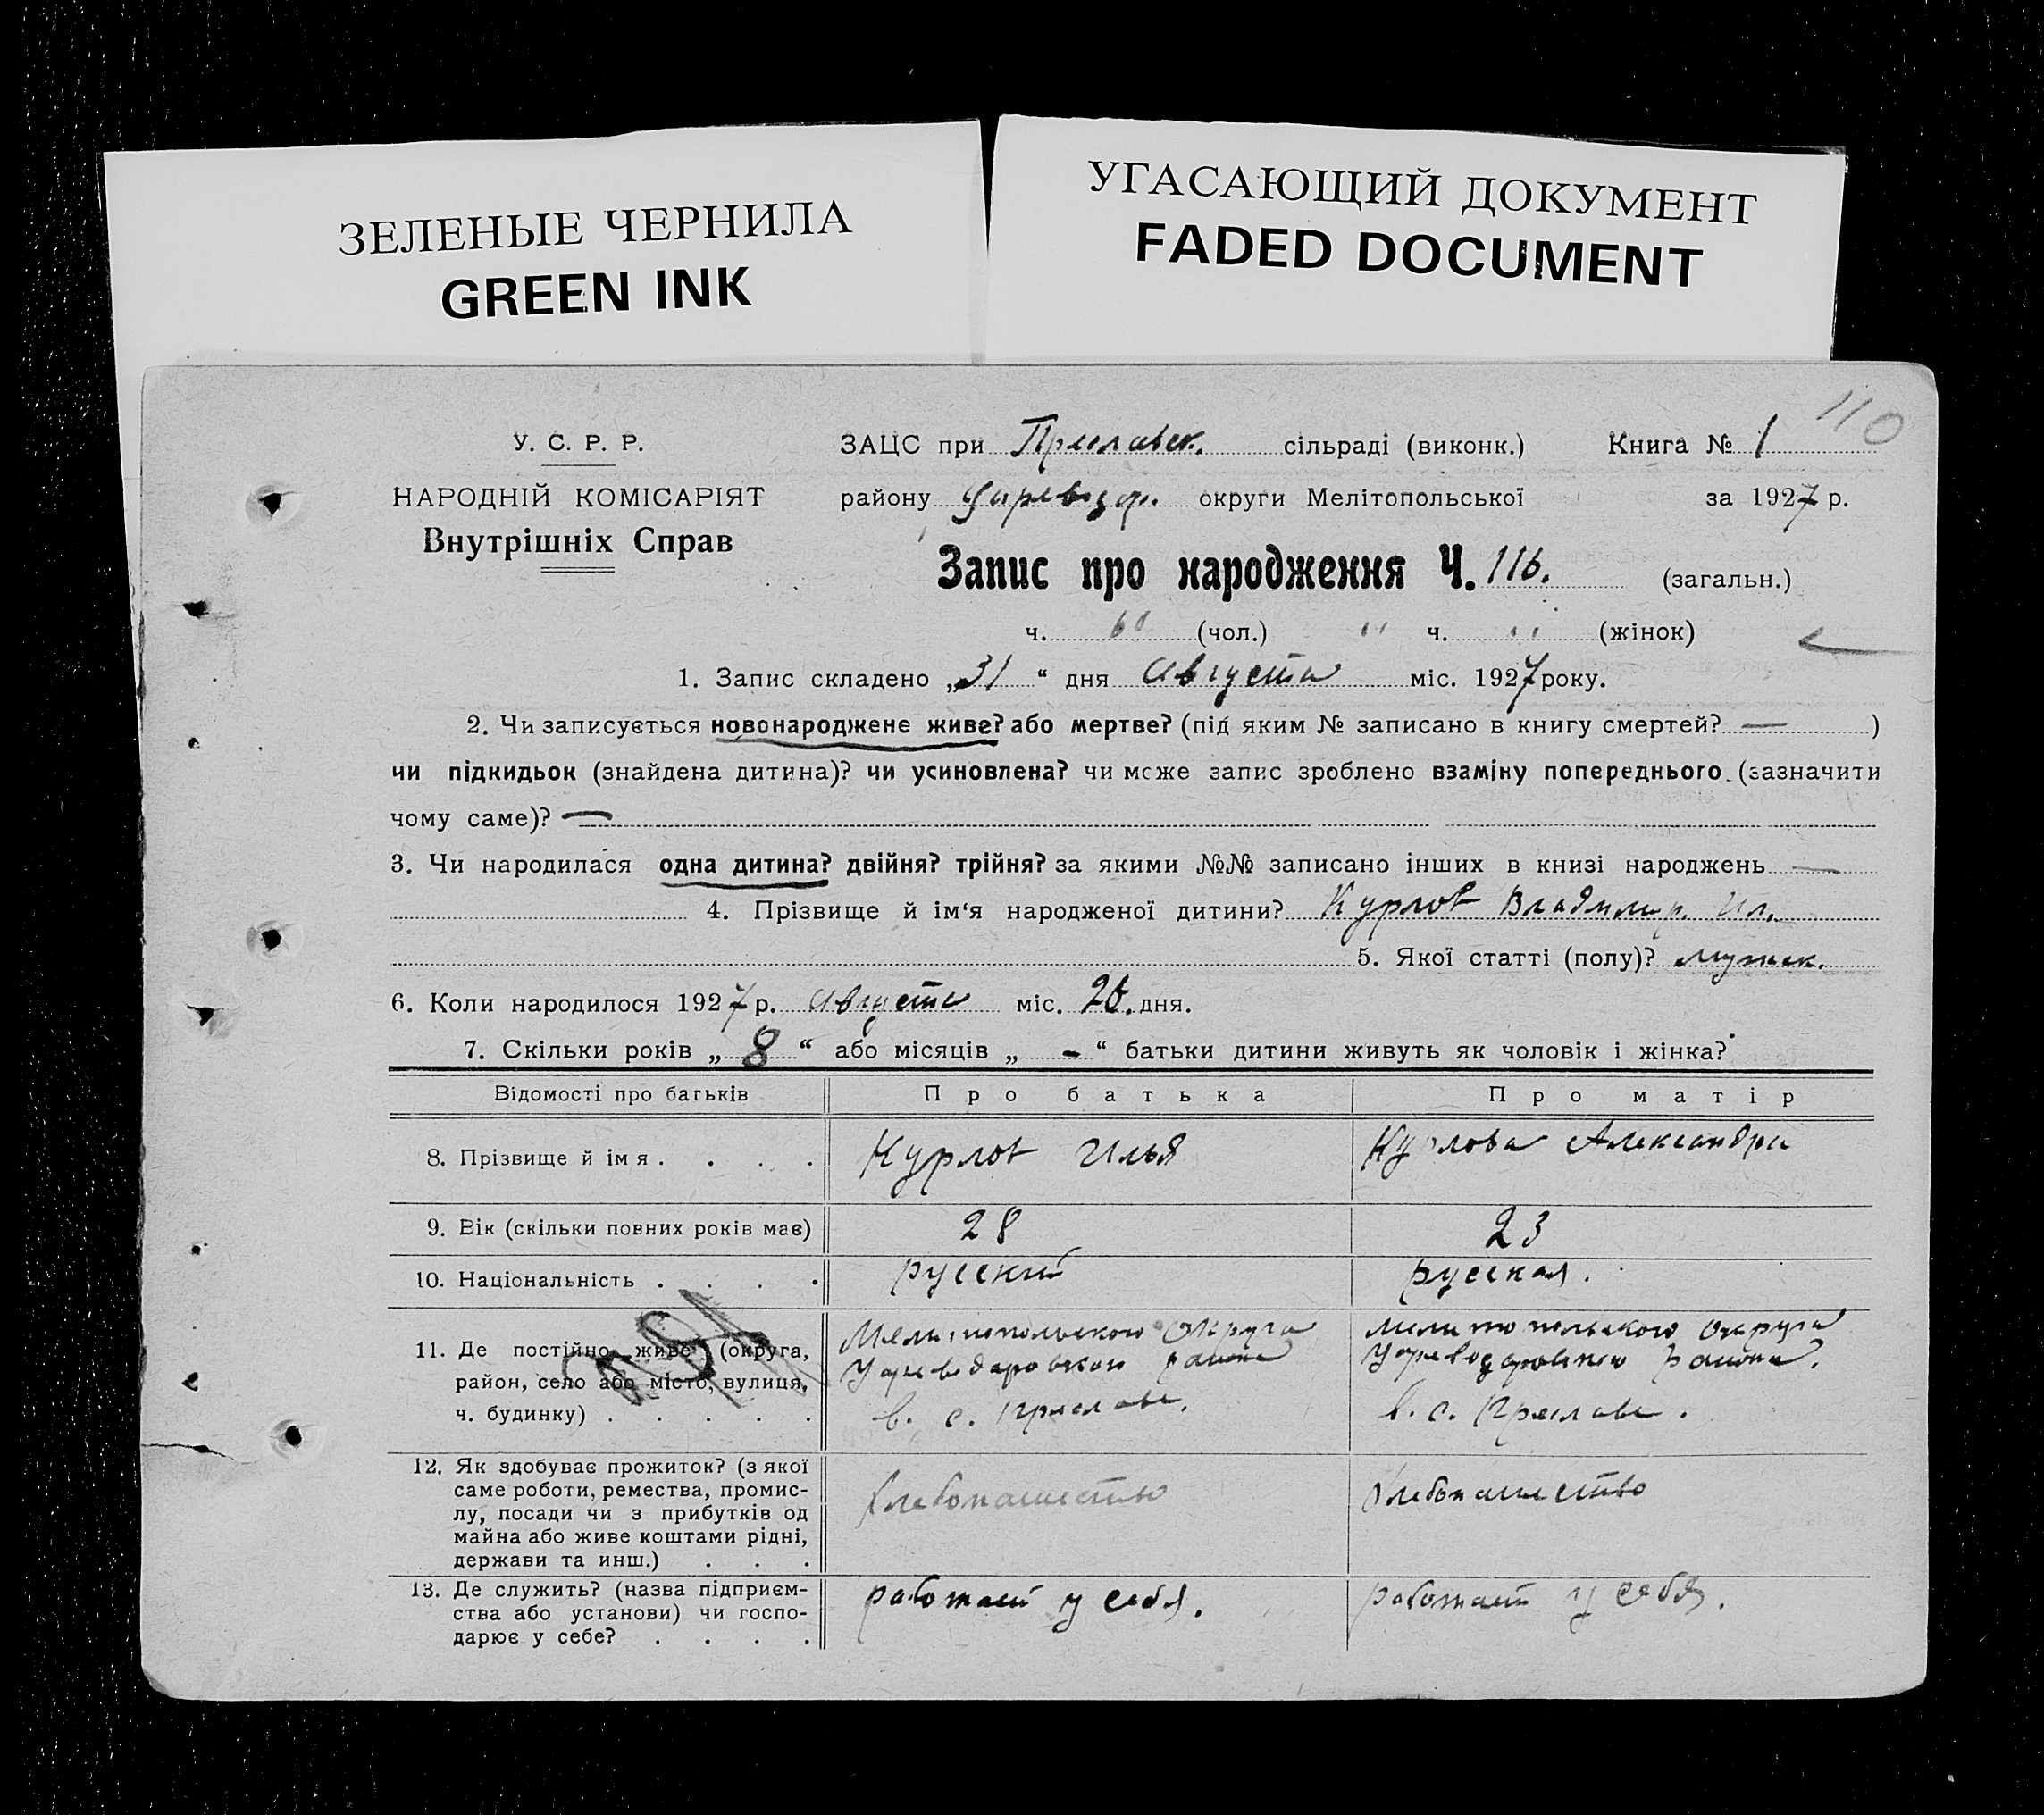 ЗЕЛЕНЫЕ ЧЕРНИЛА
GREEN INK
УГАСАЮЩИЙ ДОКУМЕНТ
FADED DOCUMENT
110
У. С. Р. Р.
НАРОДНІЙ КОМІСАРІЯТ
Внутрішніх Справ
ЗАЦС при Преславск. сільраді (виконк.) Книга № 1
району округи Мелітопольської за 1927 р.
Запис про народження Ч. 116. (загальн.)
ч. (чол.) " ч. (жінок)
1. Запис складено „31“ дня Августа міс. 1927 року.
2. Чи записується новонароджене живе? або мертве? (під яким № записано в книгу смертей? — )
чи підкидьок (знайдена дитина)? чи усиновлена? чи може запис зроблено взаміну попереднього (зазначити
чому саме)? —
3. Чи народилася одна дитина? двійня? трійня? за якими №№ записано інших в книзі народжень —
4. Прізвище й ім‘я народженої дитини? Курлов Владимир. Ил.
5. Якої статті (полу)? мужск.
6. Коли народилося 1927 р. Августа міс. дня.
7. Скільки років „ 8 “ або місяців „ - “ батьки дитини живуть як чоловік і жінка?
Відомості про батьків Про батька Про матір
8. Прізвище й імя . . . . Курлов Илья Курлова Александра
9. Вік (скільки повних років має) 28 23
10. Національність . . . . русский русская.
11. Де постійно живе (округа,
район, село або місто, вулиця,
ч. будинку) . . . . .
Мелитопольского Округа
Цареводаровского района
в. с. Преслове.
Мелитопольского Округа
Цареводаровского района.
в. с. Преславе.
12. Як здобуває прожиток? (з якої
саме роботи, ремества, промис-
лу, посади чи з прибутків од
майна або живе коштами рідні,
держави та инш.) . . .
Хлебопашество
Хлебопашество
13. Де служить? (назва підприєм-
ства або установи) чи госпо-
дарює у себе? . . . .
работает у себя.
работает у себя.